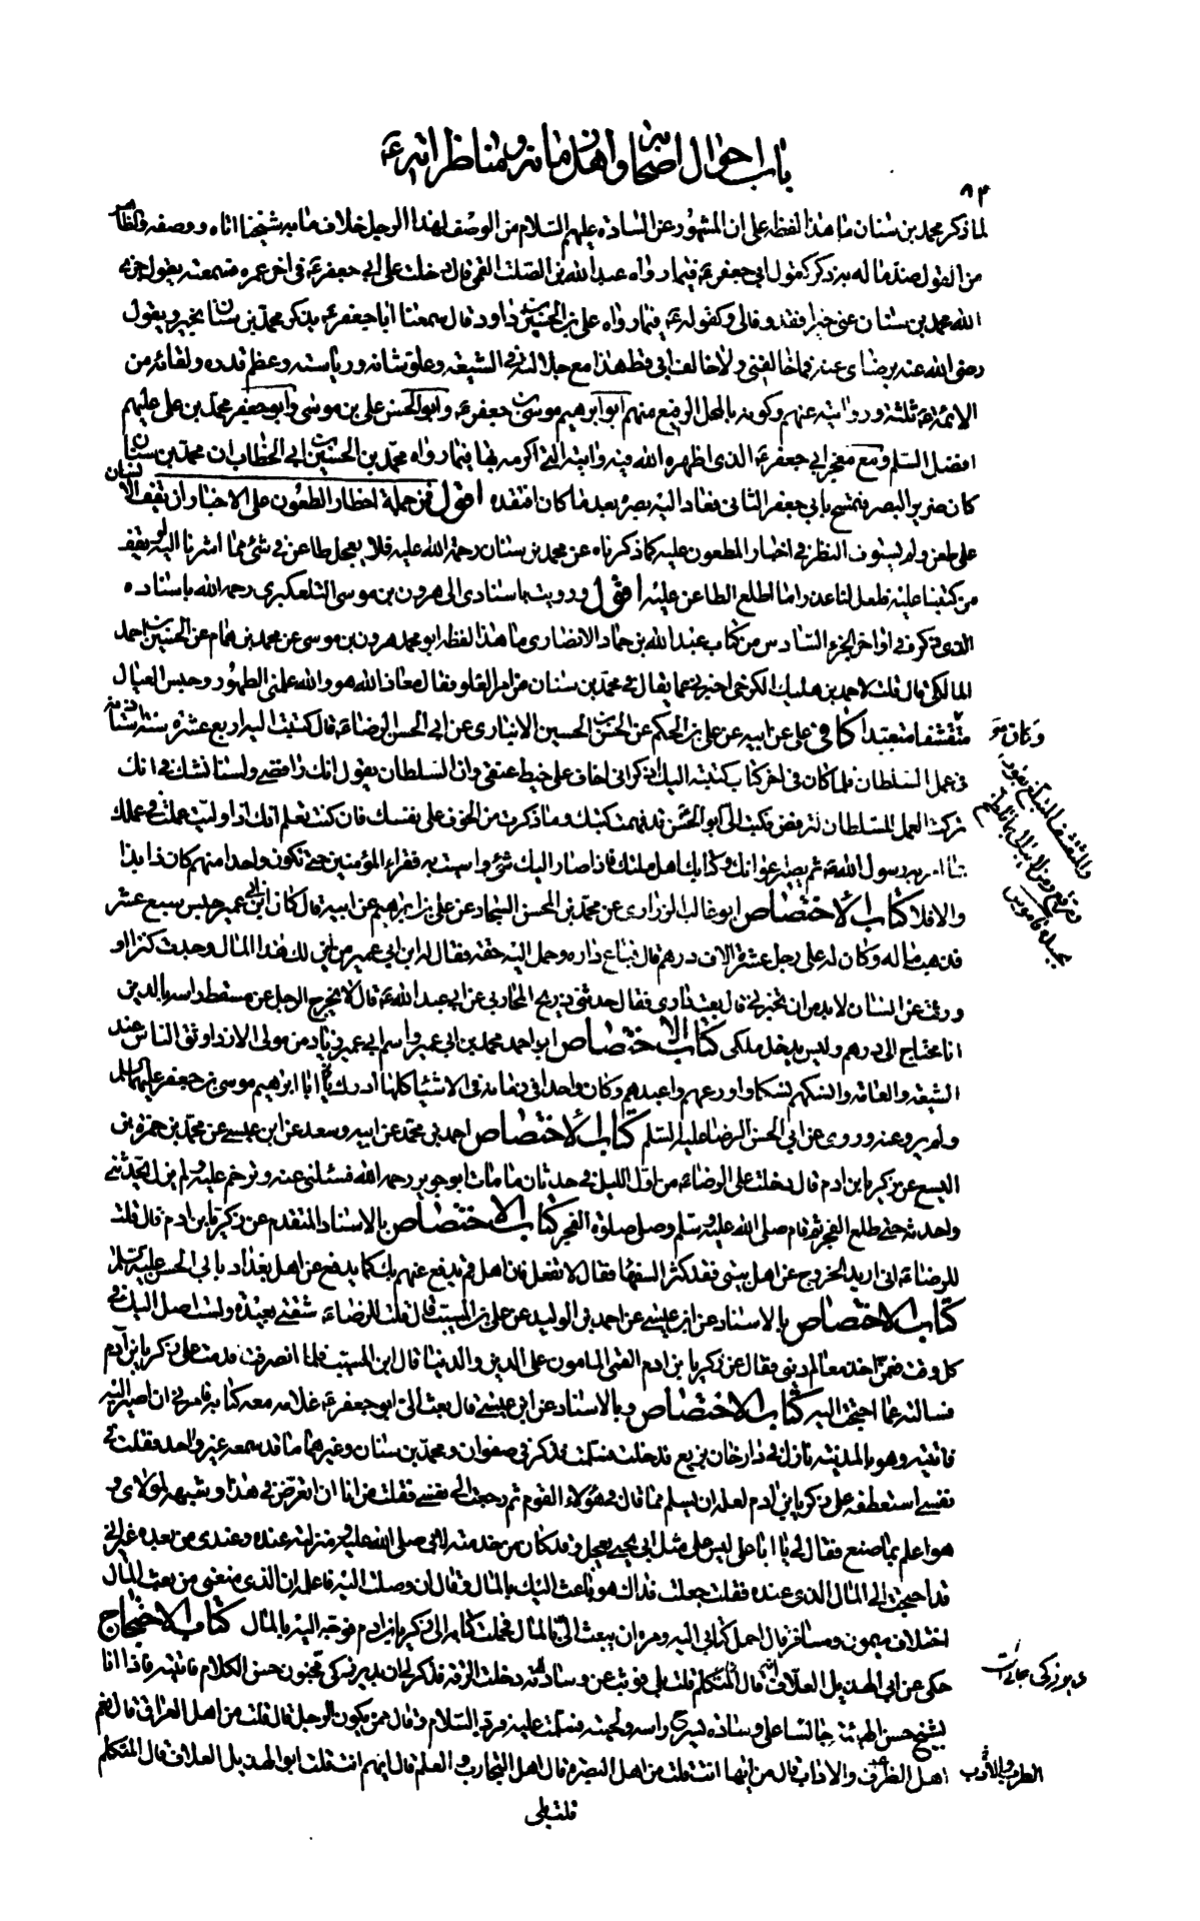 باب احوال اصحابه واهل زمانه ومناظراتهم ع
٨٣
لما ذكر محمد بن سنان ما هذا لفظه على ان المشهور عن السادة عليهم السلام من الوصف لهذا الرجل خلاف ما به شيخنا اتاه ووصفه والظاهر
من القول ضد ما له به ذكر كقول ابي جعفر ع فيما رواه عبد الله بن الصلت القمي قال دخلت على ابي جعفر ع في اخر عمره فسمعته يقول جزى
الله محمد بن سنان عني خيرا فقد وفى لي وكقوله ع فيما رواه علي بن الحسين بن داود قال سمعنا ابا جعفر ع يذكر محمد بن سنان بخير ويقول
رضى الله عنه برضائي عنه فما خالفني ولا خالف ابي قط هذا مع جلالته في الشيعة وعلو شانه ورياسته وعظم قدره ولقائه من
الائمة ع ثلثة وروايته عنهم وكونه بالمحل الرفيع منهم ابو ابرهيم موسى بن جعفر ع وابو الحسن علي بن موسى وابو جعفر محمد بن علي عليهم
افضل السلم ومع معجز ابي جعفر ع الذي اظهره الله فيه وايته التي اكرمه بها فيما رواه محمد بن الحسين بن ابي الخطاب ان محمد بن سنان
كان ضرير البصر فتمسح بابي جعفر الثاني فعاد اليه بصره بعد ما كان افتقده اقول فمن جملة اخطار الطعون على الاخيار ان يقف الانسان
على طعن ولم يستوف النظر في اخبار المطعون عليه كما ذكرناه عن محمد بن سنان رحمة الله عليه فلا يعجل طاعن في شئ مما اشرنا اليه او يقف
من كتبنا عليه فلعل لنا عذرا ما اطلع الطاعن عليه اقول ورويت باسنادي الى هرون بن موسى التلعكبري رحمه الله باسناده
الذي ذكره في اواخر الجزء السادس من كتاب عبد الله بن حماد الانصاري ما هذا لفظه ابو محمد هرون بن موسى عن محمد بن همام عن الحسين بن احمد
المالكي قال قلت لاحمد بن هليل الكرخي اخبرني عما يقال في محمد بن سنان من امر الغلو فقال معاذ الله هو والله علمني الطهور وحبس العيال
وكان متقشفا متعبدا كافي علي عن ابيه عن علي بن الحكم عن الحسن بن الحسين الانباري عن ابي الحسن الرضا ع قال كتبت اليه اربع عشرة سنة استاذنه
في عمل السلطان فلما كان في اخر كتاب كتبته اليه اذكر اني اخاف على خيط عنقي وان السلطان يقول انك رافضي ولسنا نشك في انك
تركت العمل للسلطان لترفض فكتب الي ابو الحسن قد فهمت كتبك وما ذكرت من الخوف على نفسك فان كنت تعلم انك اذا وليت عملت في عملك
بما امر به رسول الله ص ثم يصير اعوانك وكتابك اهل ملتك فاذا صار اليك شئ واسيت به فقراء المؤمنين حتى تكون واحدا منهم كان ذا بذا
والا فلا كتاب الاختصاص ابو غالب الزراري عن محمد بن الحسن السجاد عن علي بن ابرهيم عن ابيه قال كان ابن ابي عمير حبس سبع عشر
فذهب ماله وكان له على رجل عشرة الاف درهم قال فباع داره وحمل اليه حقه فقال له ابن ابي عمير من اين لك هذا المال وجدت كنزا او
ورثت عن انسان لا بد من ان تخبرني قال بعت داري فقال حدثني ذريح المحاربي عن ابي عبد الله ع قال لا يخرج الرجل عن مسقط راسه بالدين
انا محتاج الى درهم وليس يدخل ملكي كتاب الاختصاص ابو احمد محمد بن ابي عمير واسم ابي عمير زياد من موالي الازد اوثق الناس عند
الشيعة والعامة وانسكهم نسكا واورعهم واعبدهم وكان واحدا في زمانه في الاشياء كلها ادرك ابا ابراهيم موسى بن جعفر عليهما السلم
ولم يرو عنه وروى عن ابي الحسن الرضا عليه السلم كتاب الاختصاص احمد بن محمد عن ابيه وسعد عن ابن عيسى عن محمد بن حمزة بن
اليسع عن زكريا بن ادم قال دخلت على الرضا ع من اول الليل في حدثان ما مات ابو جرير رحمه الله فسئلني عنه وترحم عليه ولم يزل يحدثني
واحدثه حتى طلع الفجر ثم قام صلى الله عليه وسلم وصلى صلوة الفجر كتاب الاختصاص بالاسناد المتقدم عن زكريا بن ادم قال قلت
للرضا ع اني اريد الخروج عن اهل بيتي فقد كثر السفهاء فقال لا تفعل فان اهل قم يدفع عنهم بك كما يدفع عن اهل بغداد بابي الحسن عليه السلم
كتاب الاختصاص بالاسناد عن ابن عيسى عن احمد بن الوليد عن علي بن المسيب قال قلت للرضا ع شقتي بعيدة ولست اصل اليك في
كل وقت فممن اخذ معالم ديني فقال عن زكريا بن ادم القمي المامون على الدين والدنيا قال ابن المسيب فلما انصرفت قدمت على زكريا بن آدم
فسالته عما احتجت اليه كتاب الاختصاص وبالاسناد عن ابن عيسى قال بعث الي ابو جعفر ع غلامه معه كتابه فامرني ان اصير اليه
فاتيته وهو بالمدينة نازل في دار خان بزيع فدخلت فسلمت فذكر في صفوان ومحمد بن سنان وغيرهما ما قد سمعه غير واحد فقلت في
نفسي استعطفه على زكريا بن ادم لعله ان يسلم مما قال في هؤلاء القوم ثم رجعت الى نفسي فقلت من انا ان اتعرض في هذا وشبهه لمولاي و
هو اعلم بما صنع فقال لي يا ابا علي ليس على مثل ابي يحيى يعجل وقد كان من خدمته لابي صلى الله عليه ومنزلته عنده وعندي من بعده غير اني
قد احتجت الى المال الذي عنده فقلت جعلت فداك هو باعث اليك بالمال وقال ان وصلت اليه فاعلمه ان الذي منعني من بعث المال
اختلاف ميمون ومسافر قال احمل كتابي اليه ومره ان يبعث الي بالمال فحملت كتابه الى زكريا بن ادم فوجه اليه بالمال كتاب الاحتجاج
حكى عن ابي الهذيل العلاف قال دخلت الرقة فذكر لي ان بدير زكى مجنون حسن الكلام فاتيته فاذا انا
بشيخ حسن الهيئة جالسا على وسادة يسرح راسه ولحيته فسلمت عليه فرد السلام وقال ممن يكون الرجل قال قلت من اهل العراق قال نعم
اهل الظرف والاداب قال من ايها انت قلت من اهل البصرة قال اهل التجارب والعلم قال ايهم انت قلت ابو الهذيل العلاف قال المتكلم
قلت بلى